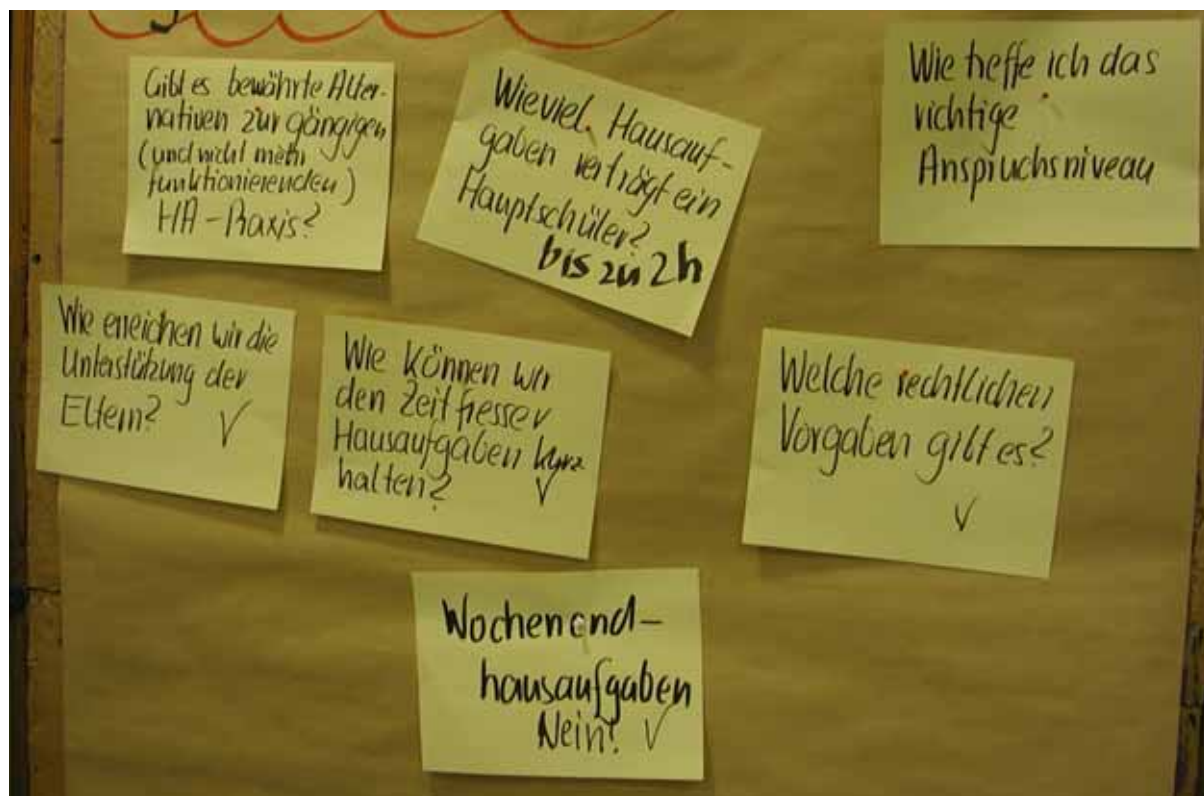 Gibt es bewährte Alter-
nativen zur gängigen
(und nicht mehr
funktionierenden)
HA-Praxis?
Wieviel Hausauf-
gaben verträgt ein
Hauptschüler?
bis zu 2h
Wie treffe ich das
richtige
Anspruchsniveau
Wie erreichen wir die
Unterstützung der
Eltern? √
Wie können wir
den Zeitfresser
Hausaufgaben kurz
halten? √
Welche rechtlichen
Vorgaben gibt es?
√
Wochenend-
hausaufgaben
Nein! √